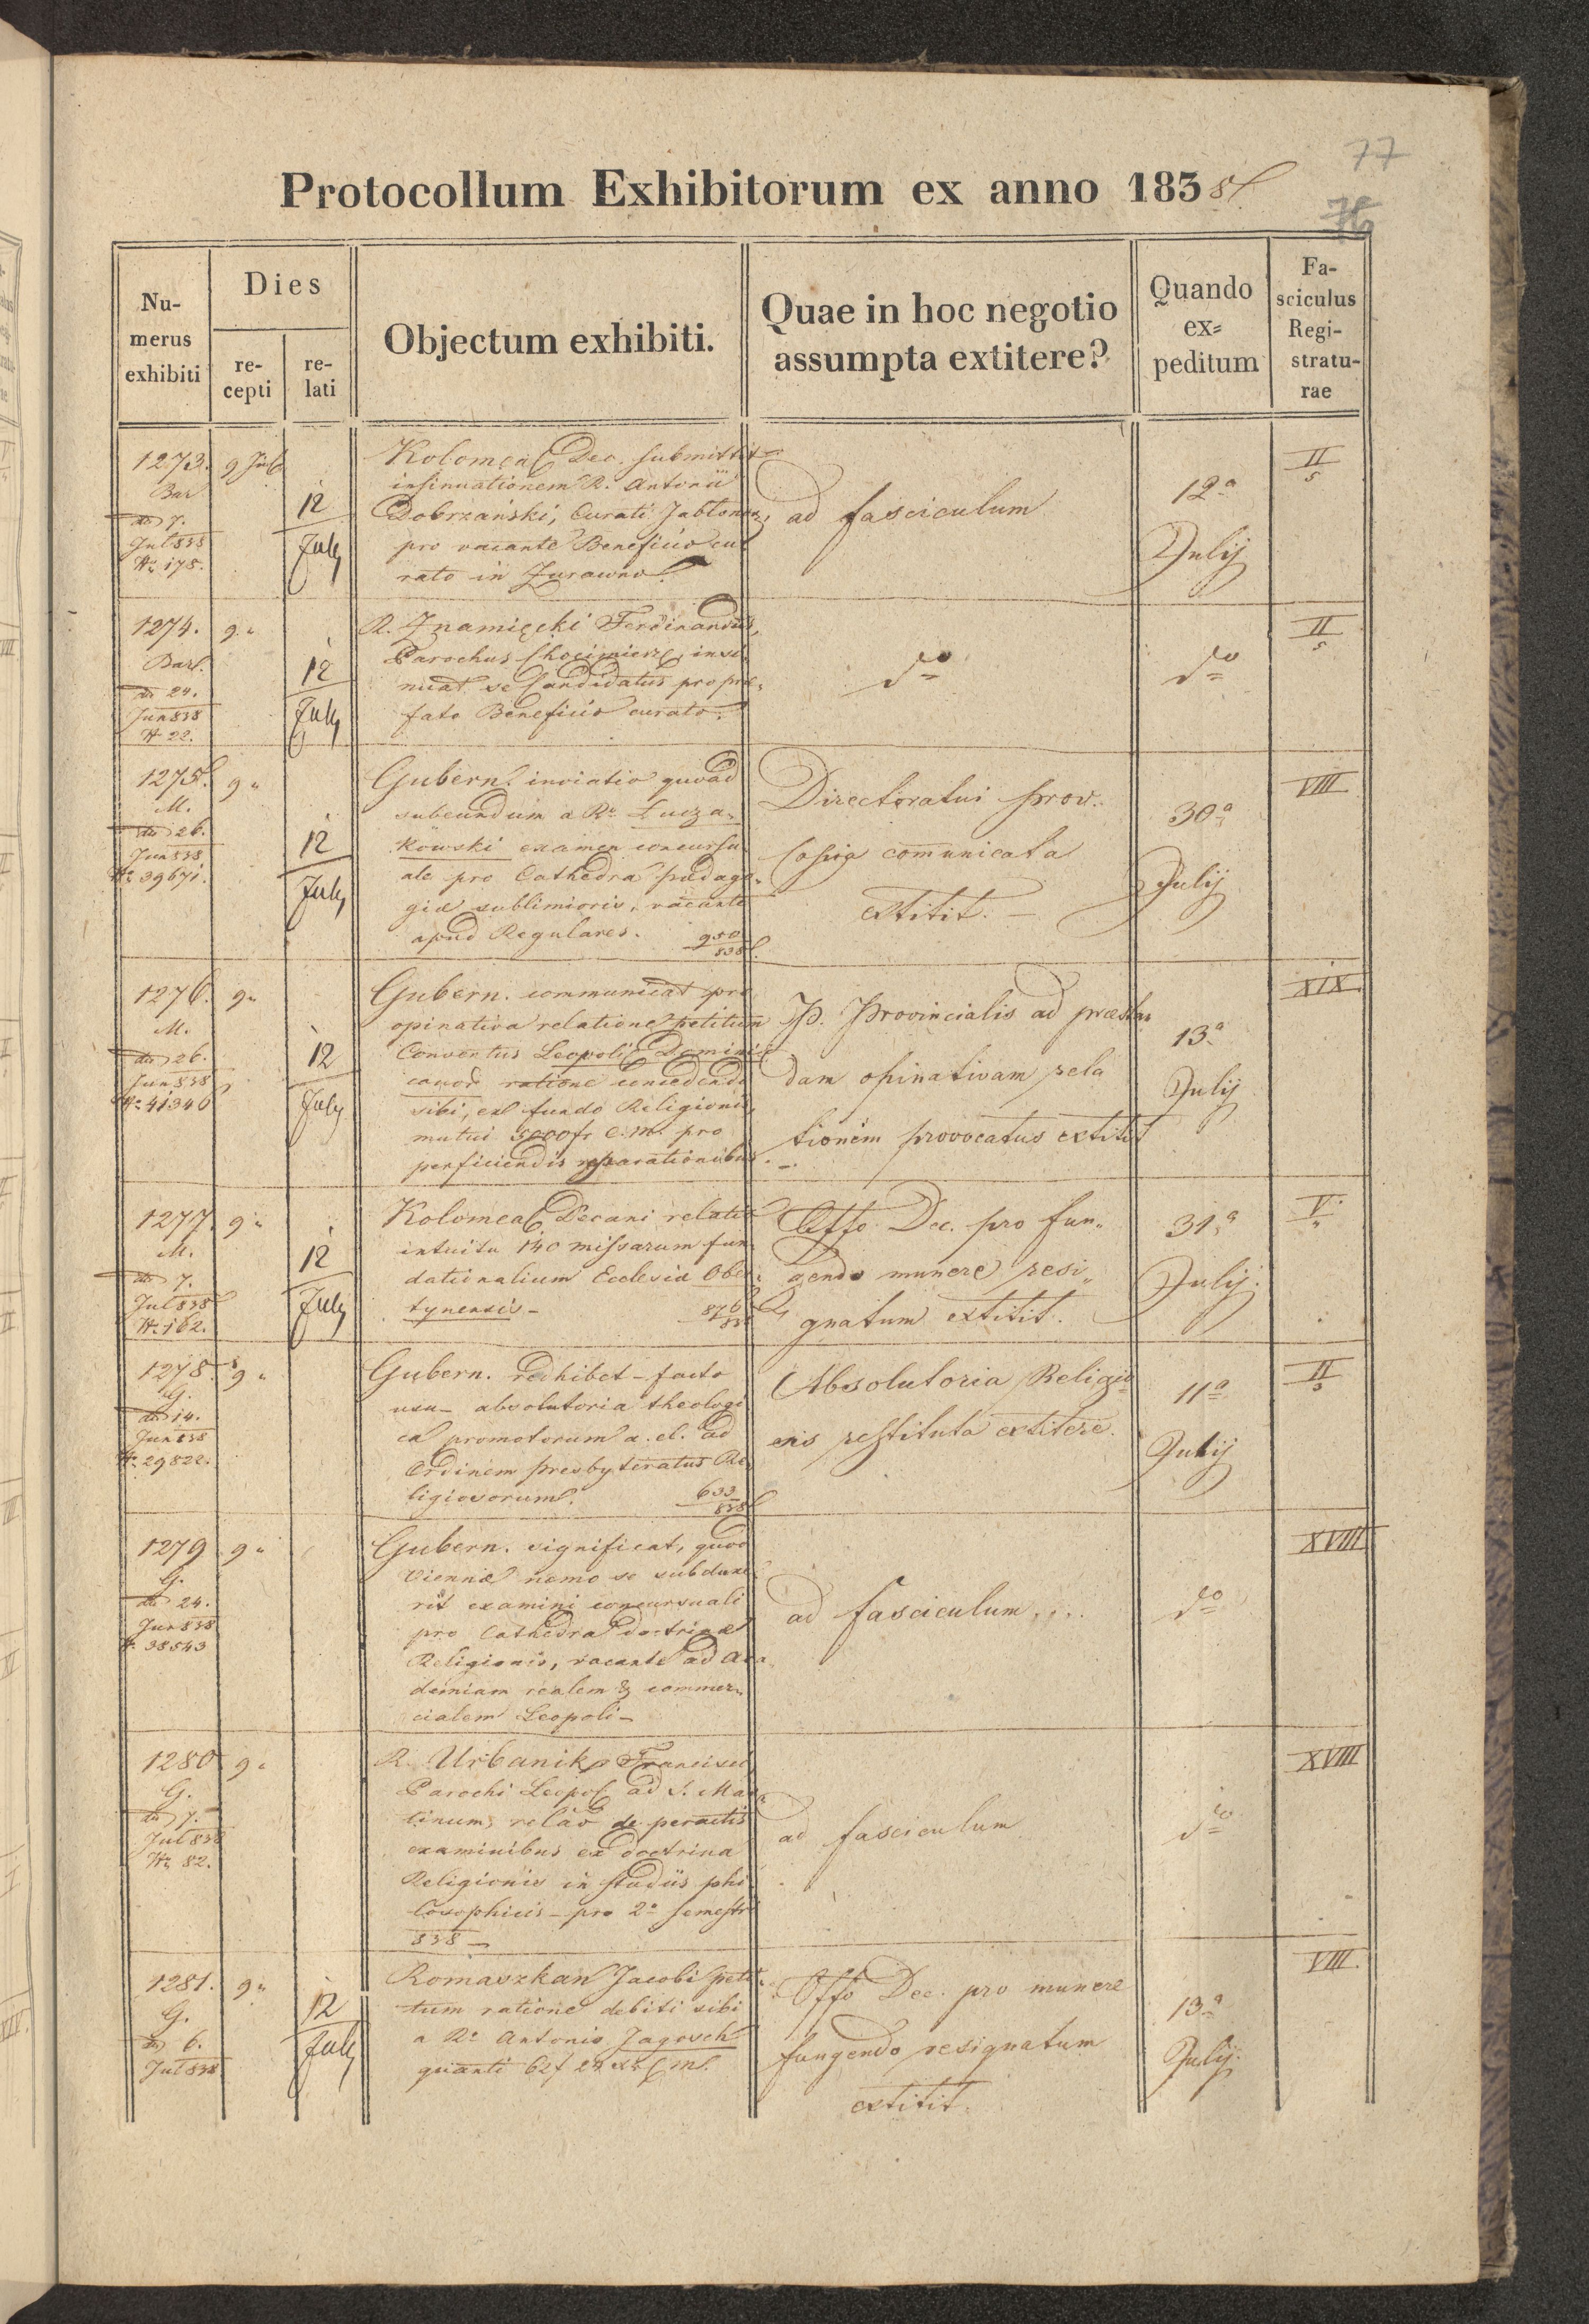 77
76
Protocollum Exhibitorum ex anno 1838
Nu-
merus
exhibiti
Dies
re-
cepti
re-
lati
Objectum exhibiti.
Quae in hoc negotio
assumpta extitere?
Quando
ex-
peditum
Fa-
sciculus
Regi-
stratu-
rae
1273. 9 Jul
Bar
dto 7.
Jul 838
Nr. 175.
12
July
Kolomea Dec. submittit
insinuationem R. Antonii
Dobrzański, Curati Jabłonov,
pro vacante Beneficio cu
rato in Zurawno.
ad fasciculum
12a
July
II
5
1274. 9 "
Bar.
dto 24.
Jun 838
Nr 22.
12
July
R. Znamięcki Ferdinandus,
Parochus Chocimierz, insi
nuat se Candidatus pro præ
fato Beneficio curato.
dto
dto
II
5
1275. 9 "
M.
dto 26.
Jun 838
Nr. 39671.
12
July
Gubern. inviatio quoad
subeundum a Re. Łucza-
kowski examen concursu
ale pro Cathedra pædago
giæ sublimioris, vacante
apud Regulares. 950
838
Directoratui prov.
Copia comunicata
extitit. —
30a
Julij
VIII
1276. 9 "
M.
dto 26.
Jun 838
Nr 41346
12
July
Gubern. communicat pro
opinativa relatione petitum
Conventus Leopoli Domini
canor ratione concedendi
sibi, ex fundo Religionis,
mutui 3000 fr C.M. pro
perficiendis reparationibus.
P. Provincialis ad præstan
dam opinativam rela
tionem provocatus extitit
13a
Julij
XIX
1277. 9 "
M.
dto 7.
Jul 838
Nr. 162.
12
July
Kolomea Decani relatio
intuitu 140 missarum fun
dationalium Ecclesiæ Ober
tynensis - 876
838
Offo Dec. pro fun-
gendo munere resi
gnatum extitit.
31a
Julij.
V.
1278. 9 "
G.
dto 14.
Jun 838
Nr. 29822.
Gubern. redhibet - facto
usu - absolutoria theologi
ca promotorum a. el. ad
Ordinem presbyteratus Re
ligiosorum. 633
838
Absolutoria Religio
sis restituta extitere.
11a
Julij
II
5
1279 9 "
G.
dto 24.
Jun 838
Nr. 38543
Gubern. significat, quod
Viennæ nemo se subduxe
rit examini concursuali
pro Cathedra doctrinæ
Religionis, vacante ad Aca
demiam realem & commer-
cialem Leopoli -
ad fasciculum....
dto
XVIII
1280 9 "
G.
dto 7.
Jul 838
Nr. 82.
R. Urbanik Francisci
Parochi Leopol ad S. Mar
tinum, relao de peractis
examinibus ex doctrina
Religionis in studiis phi
losophicis - pro 2o semestri
838 -
ad fasciculum
dto
XVIII
1281. 9 "
G.
dto 6.
Jul 838
12
July
Romaszkan Jacobi peti
tum ratione debiti sibi
a Re Antonio Jagosch
quanti 62 f 24 xr C.M.
Offo Dec. pro munere
fungendo resignatum
extitit.
13a
Julij.
VIII.